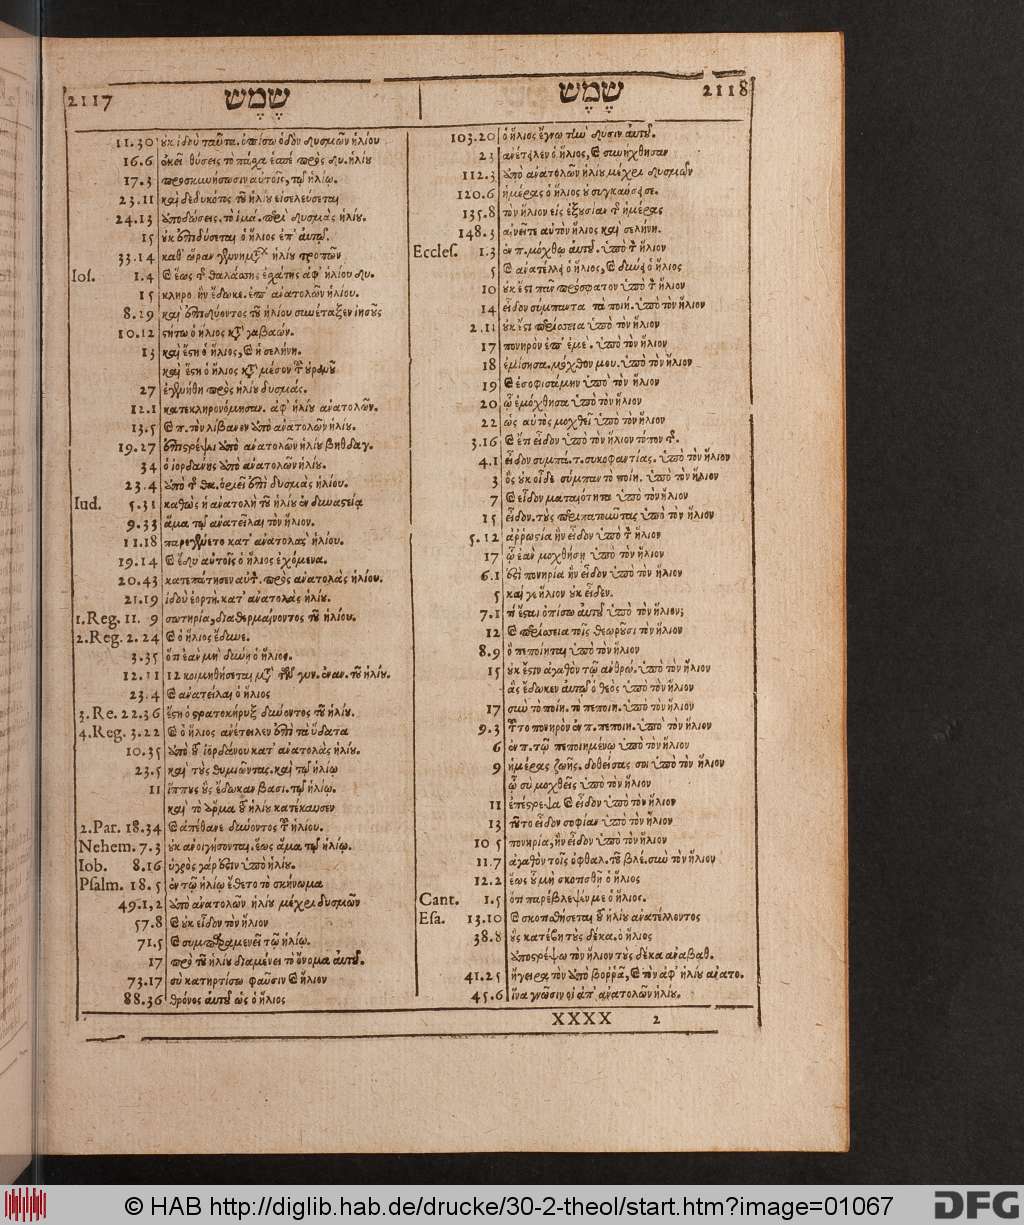 2117 שֶׁמֶשׁ
שֶׁמֶשׁ 2118
11.30 οὐκ ἰδοὺ ταῦτα. ὀπίσω ὁδὸν δυσμῶν ἡλίου
16.6 ἐκεῖ θύσεις τὸ πάσχα ἑσπέ πρὸς δυ. ἡλίου
17.3 προσκυνήσωσιν αὐτοῖς, τῷ ἡλίῳ.
23.11 καὶ δεδυκότος τοῦ ἡλίου εἰσελεύσεται
24.13 ἀποδώσεις. τὸ ἱμά. περὶ δυσμὰς ἡλίου.
15 οὐκ ἐπιδύσεται ὁ ἥλιος ἐπ' αὐτῷ.
33.14 καθ' ὥραν γεννημάτων ἡλίου τροπῶν
Ios. 1.4 καὶ ἕως τῆς θαλάσσης ἐσχάτης ἀφ' ἡλίου δυ.
15 κληρο ἣν ἔδωκε. ἐπ' ἀνατολῶν ἡλίου.
8.29 καὶ ἐπιδύοντος τοῦ ἡλίου συνέταξεν ἰησοῦς
10.12 στήτω ὁ ἥλιος κατὰ γαβαών.
13 καὶ ἔστη ὁ ἥλιος, καὶ ἡ σελήνη.
καὶ ἔστη ὁ ἥλιος κατὰ μέσον τοῦ οὐρανοῦ
27 ἐγενήθη πρὸς ἡλίου δυσμάς.
12.1 κατεκληρονόμησαν. ἀφ' ἡλίου ἀνατολῶν.
13.5 καὶ π. τὸν λίβανον ἀπὸ ἀνατολῶν ἡλίου.
19.27 ἐπιστρέψει ἀπὸ ἀνατολῶν ἡλίου βηθδαγ.
34 ὁ ἰορδάνης ἀπὸ ἀνατολῶν ἡλίου.
23.4 ὁριεῖ ἐπὶ δυσμὰς ἡλίου.
Iud. 5.31 καθὼς ἡ ἀνατολὴ τοῦ ἡλίου ἐν δυναστείᾳ
9.33 ἅμα τῷ ἀνατεῖλαι τὸν ἥλιον.
11.18 παρεγένετο κατ' ἀνατολὰς ἡλίου.
19.14 καὶ ἔδυ αὐτοῖς ὁ ἥλιος ἐχόμενα.
20.43 κατεπάτησεν αὐτ. πρὸς ἀνατολὰς ἡλίου.
21.19 ἰδοὺ ἑορτή. κατ' ἀνατολὰς ἡλίου.
1.Reg. 11. 9 σωτηρία, διαθερμαίνοντος τοῦ ἡλίου.
2.Reg. 2.24 καὶ ὁ ἥλιος ἔδυνε.
3.35 ὅτι ἐὰν μὴ δύνῃ ὁ ἥλιος.
12.11 κοιμηθήσεται μετὰ τῶν γυν. ἐναν. τοῦ ἡλίου.
23.4 καὶ ἀνατείλαι ὁ ἥλιος
3.Re. 22.36 ἔστη ὁ στρατοκήρυξ δύνοντος τοῦ ἡλίου.
4.Reg. 3.22 καὶ ὁ ἥλιος ἀνέτειλεν ἐπὶ τὰ ὕδατα
10.35 ἀπὸ τοῦ ἰορδάνου κατ' ἀνατολὰς ἡλίου.
23.5 καὶ τοὺς θυμιῶντας. καὶ τῷ ἡλίῳ
11 ἵππους οὓς ἔδωκαν βασι. τῷ ἡλίῳ.
καὶ τὸ ἅρμα τοῦ ἡλίου κατέκαυσεν
2.Par. 18.34 καὶ ἀπέθανε δύνοντος τοῦ ἡλίου.
Nehem. 7.3 οὐκ ἀνοιγήσονται. ἕως ἅμα τῷ ἡλίῳ.
Iob. 8.16 ὑγρὸς γάρ ἐστιν ὑπὸ ἡλίου.
Psalm. 18.5 ἐν τῷ ἡλίῳ ἔθετο τὸ σκήνωμα
49.1,2 ἀπὸ ἀνατολῶν ἡλίου μέχρι δυσμῶν
57.8 καὶ οὐκ εἶδον τὸν ἥλιον
71.5 καὶ συμπαραμενεῖ τῷ ἡλίῳ.
17 πρὸ τοῦ ἡλίου διαμένει τὸ ὄνομα αὐτοῦ.
73.17 σὺ κατηρτίσω φαῦσιν καὶ ἥλιον
88.36 θρόνος αὐτοῦ ὡς ὁ ἥλιος
103.20 ὁ ἥλιος ἔγνω τὴν δύσιν αὐτοῦ.
23 ἀνέτειλεν ὁ ἥλιος, καὶ συνήχθησαν
112.3 ἀπὸ ἀνατολῶν ἡλίου μέχρι δυσμῶν
120.6 ἡμέρας ὁ ἥλιος οὐ συγκαύσει σε.
135.8 τὸν ἥλιον εἰς ἐξουσίαν τῆς ἡμέρας
148.3 αἰνεῖτε αὐτὸν ἥλιος καὶ σελήνη.
Eccles. 1.3 ἐν π. μόχθῳ αὐτοῦ. ὑπὸ τὸν ἥλιον
5 καὶ ἀνατέλλει ὁ ἥλιος, καὶ δύνει ὁ ἥλιος
10 οὐκ ἔστι πᾶν πρόσφατον ὑπὸ τὸν ἥλιον
14 εἶδον σύμπαντα τὰ ποιή. ὑπὸ τὸν ἥλιον
2.11 οὐκ ἔστι περίσσεια ὑπὸ τὸν ἥλιον
17 πονηρὸν ἐπ' ἐμέ. ὑπὸ τὸν ἥλιον
18 ἐμίσησα. μόχθον μου. ὑπὸ τὸν ἥλιον
19 καὶ ἐσοφισάμην ὑπὸ τὸν ἥλιον
20 ᾧ ἐμόχθησα ὑπὸ τὸν ἥλιον
22 ὡς αὐτὸς μοχθεῖ ὑπὸ τὸν ἥλιον
3.16 καὶ ἔτι εἶδον ὑπὸ τὸν ἥλιον τόπον τ.
4.1 εἶδον συμπά. τ. συκοφαντίας. ὑπὸ τὸν ἥλιον
3 ὃς οὐκ οἶδε σύμπαν τὸ ποίη. ὑπὸ τὸν ἥλιον
7 καὶ εἶδον ματαιότητα ὑπὸ τὸν ἥλιον
15 εἶδον. τοὺς περιπατοῦντας ὑπὸ τὸν ἥλιον
5.12 ἀρρωστία ἣν εἶδον ὑπὸ τὸν ἥλιον
17 ᾧ ἐὰν μοχθήσῃ ὑπὸ τὸν ἥλιον
6.1 ἔστι πονηρία ἣν εἶδον ὑπὸ τὸν ἥλιον
5 καί γε ἥλιον οὐκ εἶδεν.
7.1 τί ἔσται ὀπίσω αὐτοῦ ὑπὸ τὸν ἥλιον;
12 καὶ περίσσεια τοῖς θεωροῦσι τὸν ἥλιον
8.9 ὃ πεποίηται ὑπὸ τὸν ἥλιον
15 οὐκ ἔστιν ἀγαθὸν τῷ ἀνθρώ. ὑπὸ τὸν ἥλιον
ἃς ἔδωκεν αὐτῷ ὁ θεὸς ὑπὸ τὸν ἥλιον
17 σὺν τὸ ποίη. τὸ πεποιη. ὑπὸ τὸν ἥλιον
9.3 τοῦτο πονηρὸν ἐν π. πεποιη. ὑπὸ τὸν ἥλιον
6 ἐν π. τῷ πεποιημένῳ ὑπὸ τὸν ἥλιον
9 ἡμέρας ζωῆς. δοθείσας σοι ὑπὸ τὸν ἥλιον
ᾧ σὺ μοχθεῖς ὑπὸ τὸν ἥλιον
11 ἐπέστρεψα καὶ εἶδον ὑπὸ τὸν ἥλιον
13 τοῦτο εἶδον σοφίαν ὑπὸ τὸν ἥλιον
10 5 πονηρία, ἣν εἶδον ὑπὸ τὸν ἥλιον
11.7 ἀγαθὸν τοῖς ὀφθαλ. τοῦ βλέ. σὺν τὸν ἥλιον
12.2 ἕως οὗ μὴ σκοτισθῇ ὁ ἥλιος
Cant. 1.5 ὅτι παρέβλεψέν με ὁ ἥλιος.
Esa. 13.10 καὶ σκοτισθήσεται τοῦ ἡλίου ἀνατέλλοντος
38.8 οὓς κατέβη τοὺς δέκα. ὁ ἥλιος
ἀποστρέψω τὸν ἥλιον τοὺς δέκα ἀναβαθ.
41.25 ἤγειρα τὸν ἀπὸ βορρᾶ, καὶ τὸν ἀφ' ἡλίου ἀνατο.
45.6 ἵνα γνῶσιν οἱ ἀπ' ἀνατολῶν ἡλίου.
XXXX 2
© HAB http://diglib.hab.de/drucke/30-2-theol/start.htm?image=01067
DFG